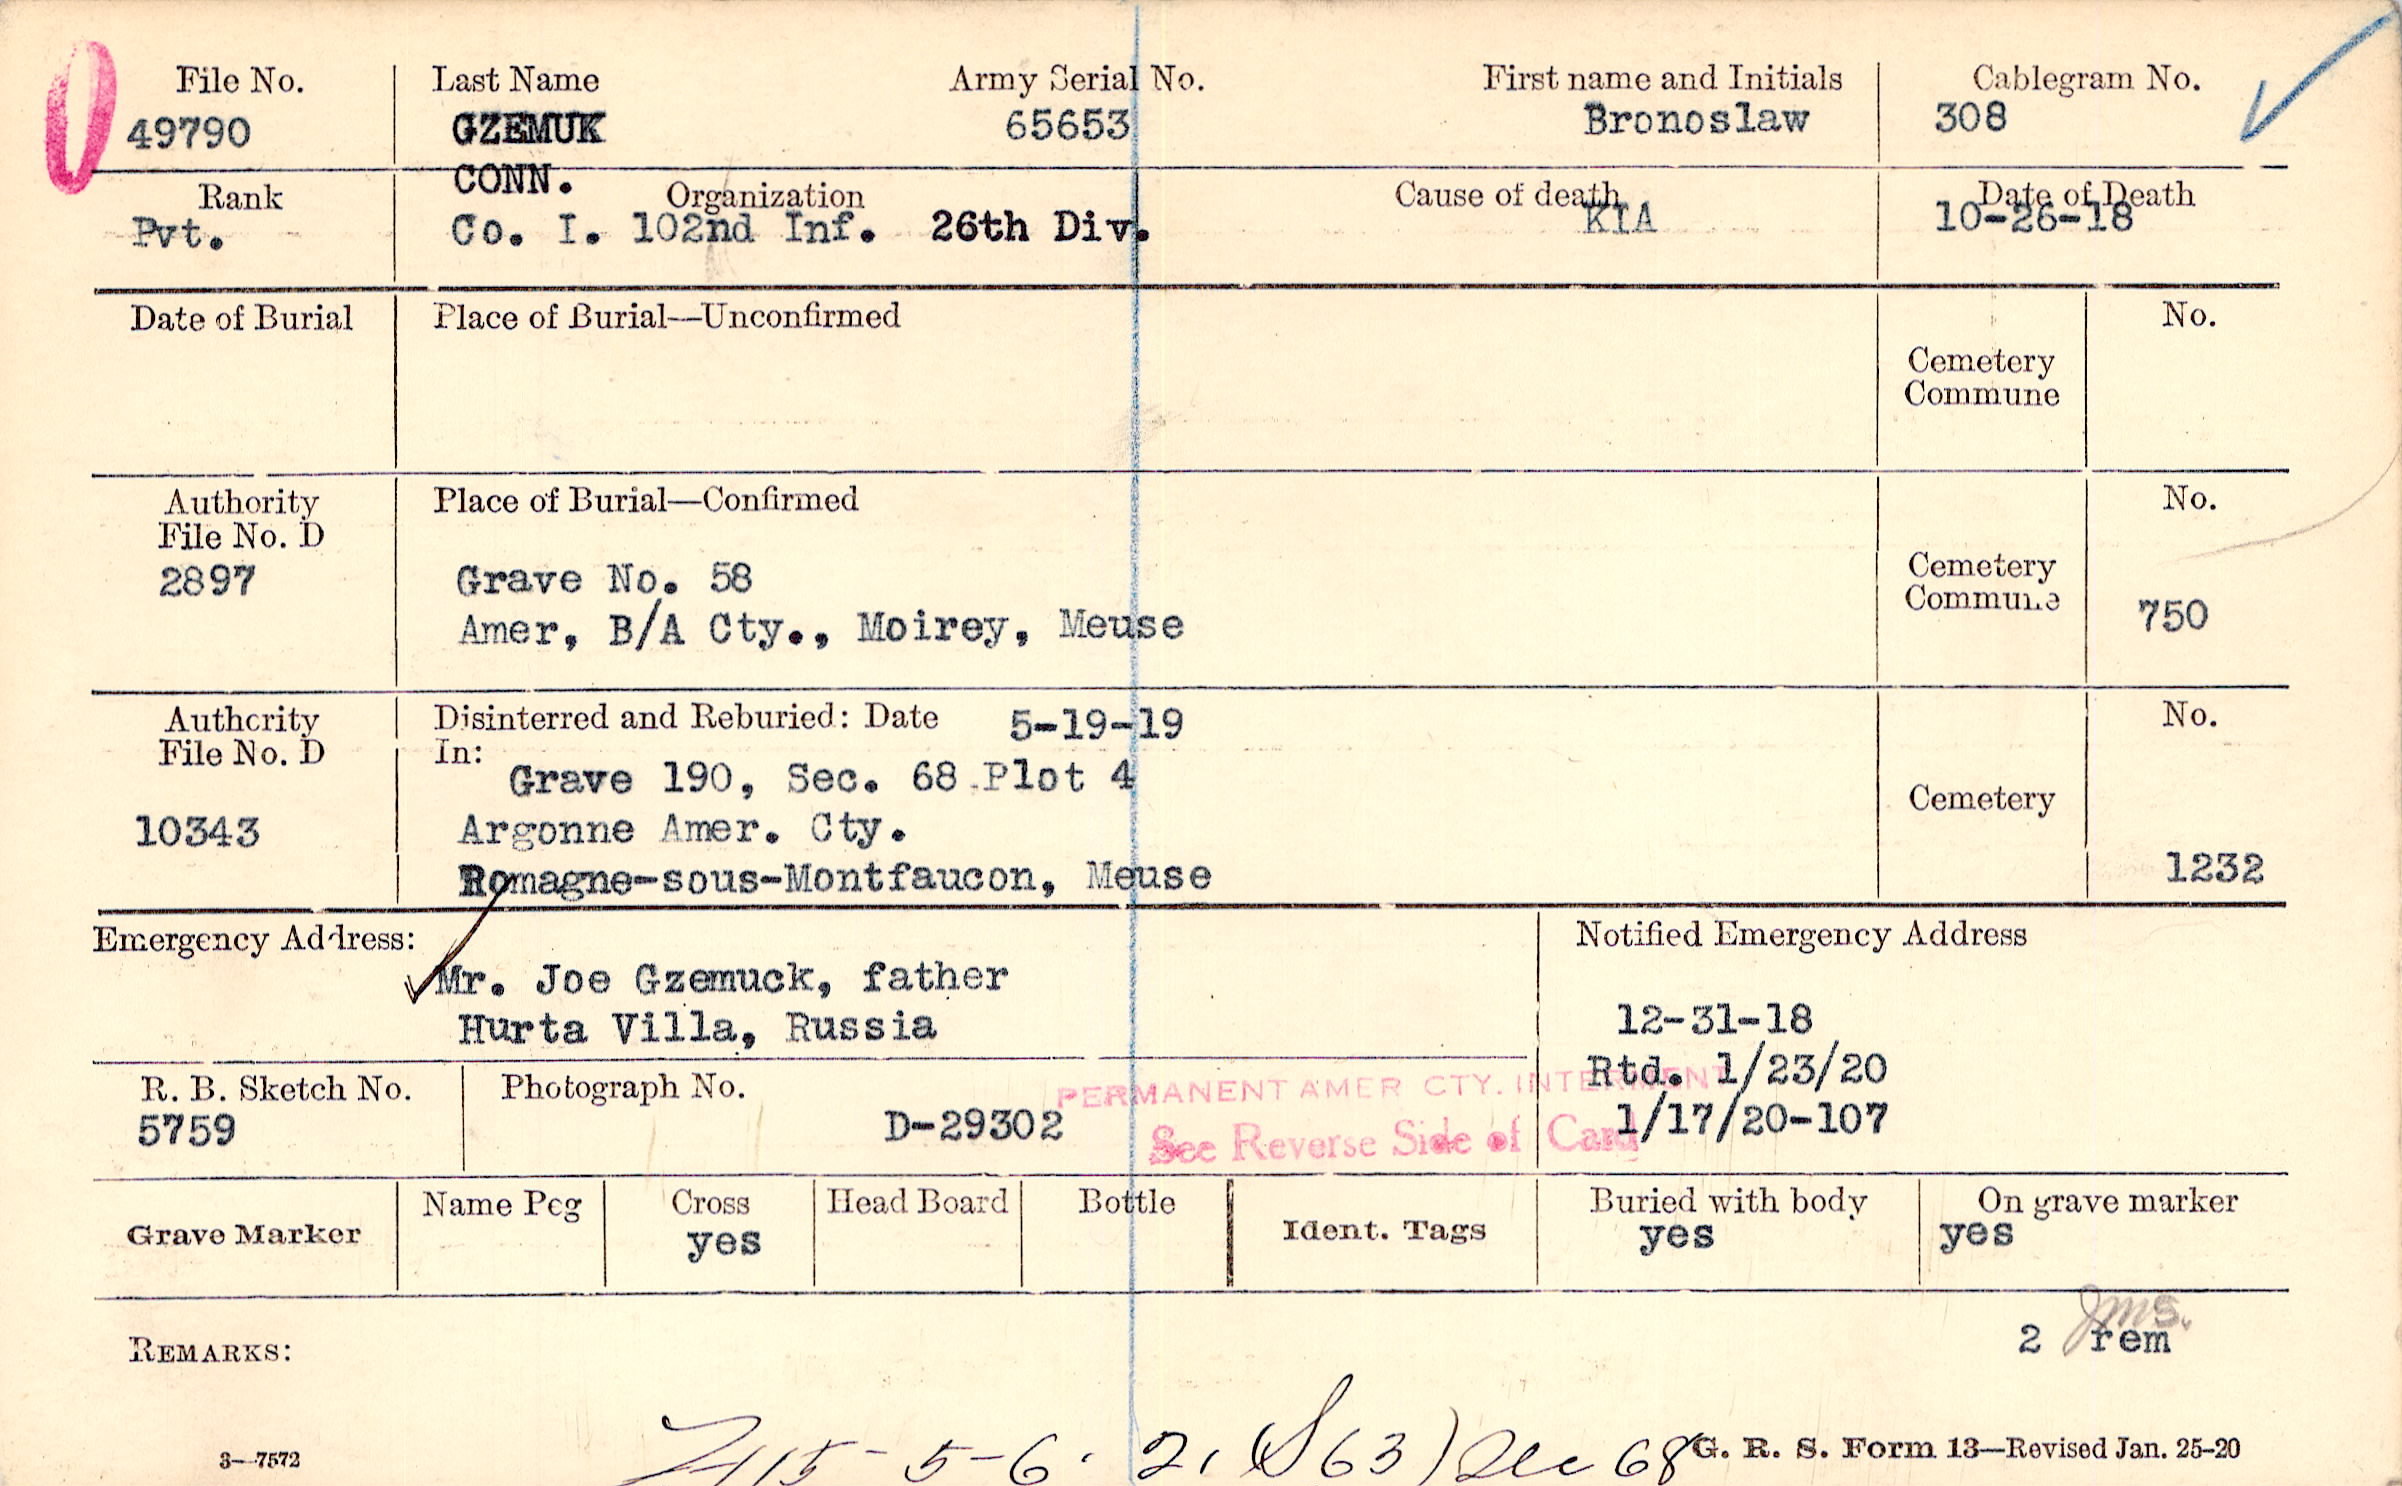 File No. Last Name Army Serial No. First name and Initials Cablegram No.
49790 GZEMUK 65653 Bronoslaw 308
CONN.
Rank Organization Cause of death Date of Death
Pvt. Co. I. 102nd Inf. 26th Div. KIA 10-26-18
Date of Burial Place of Burial—Unconfirmed No.
Cemetery
Commune
Authority Place of Burial—Confirmed No.
File No. D
2897 Grave No. 58 Cemetery
Amer, B/A Cty., Moirey, Meuse Commune 750
Authority Disinterred and Reburied: Date 5-19-19 No.
File No. D In:
Grave 190, Sec. 68 Plot 4 Cemetery
10343 Argonne Amer. Cty.
Romagne-sous-Montfaucon, Meuse 1232
Emergency Address: Notified Emergency Address
Mr. Joe Gzemuck, father
Hurta Villa, Russia 12-31-18
Rtd. 1/23/20
R. B. Sketch No. Photograph No. PERMANENT AMER CTY. INTERMENT
5759 D-29302 1/17/20-107
See Reverse Side of Card
Grave Marker Name Peg Cross Head Board Bottle Ident. Tags Buried with body On grave marker
yes yes yes
JMS.
REMARKS: 2 rem
3—7572 G. R. S. Form 13—Revised Jan. 25-20
15-5-6. 2. (S63) Sec 68